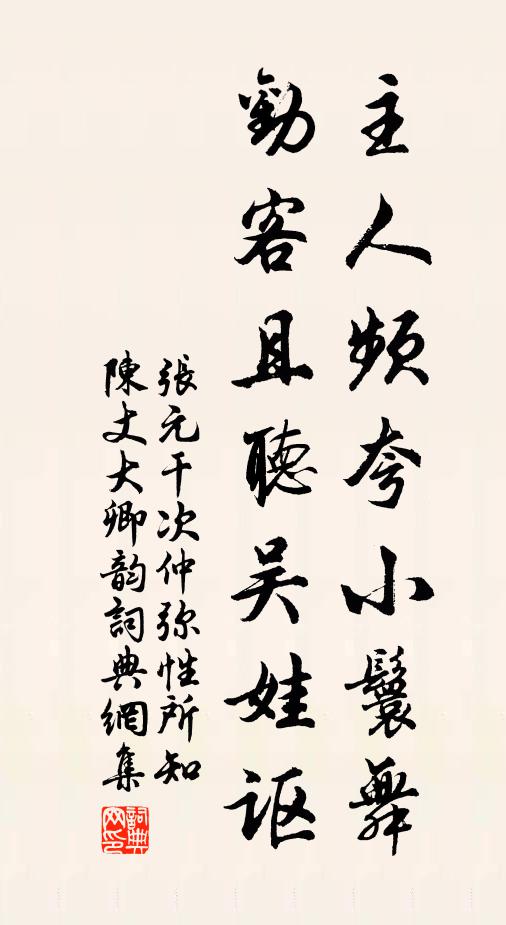 主人頻夸小鬟舞
勸客且聽吴娃讴
張元干次仲弥性所知
陳丈大卿韵詞典網集
詞典網印